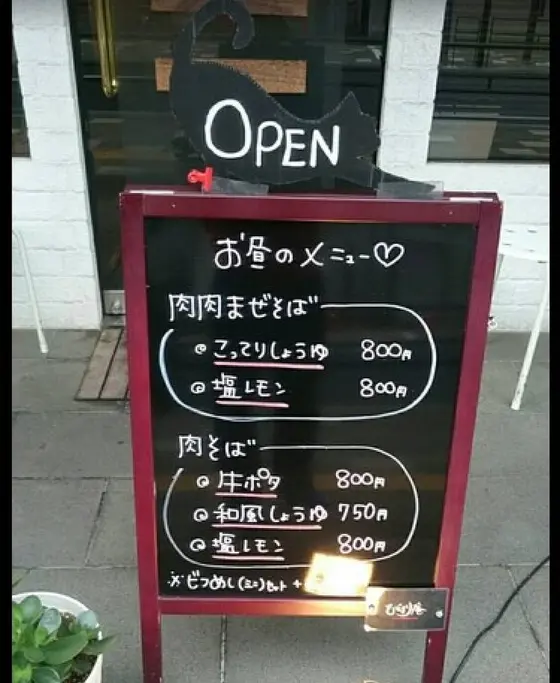 OPEN
お昼のメニュー♡
肉肉まぜそば
こってりしょうゆ 800円
塩レモン 800円
肉そば
牛ポタ 800円
和風しょうゆ 750円
塩レモン 800円
※ビフめし(ミニ)セット +